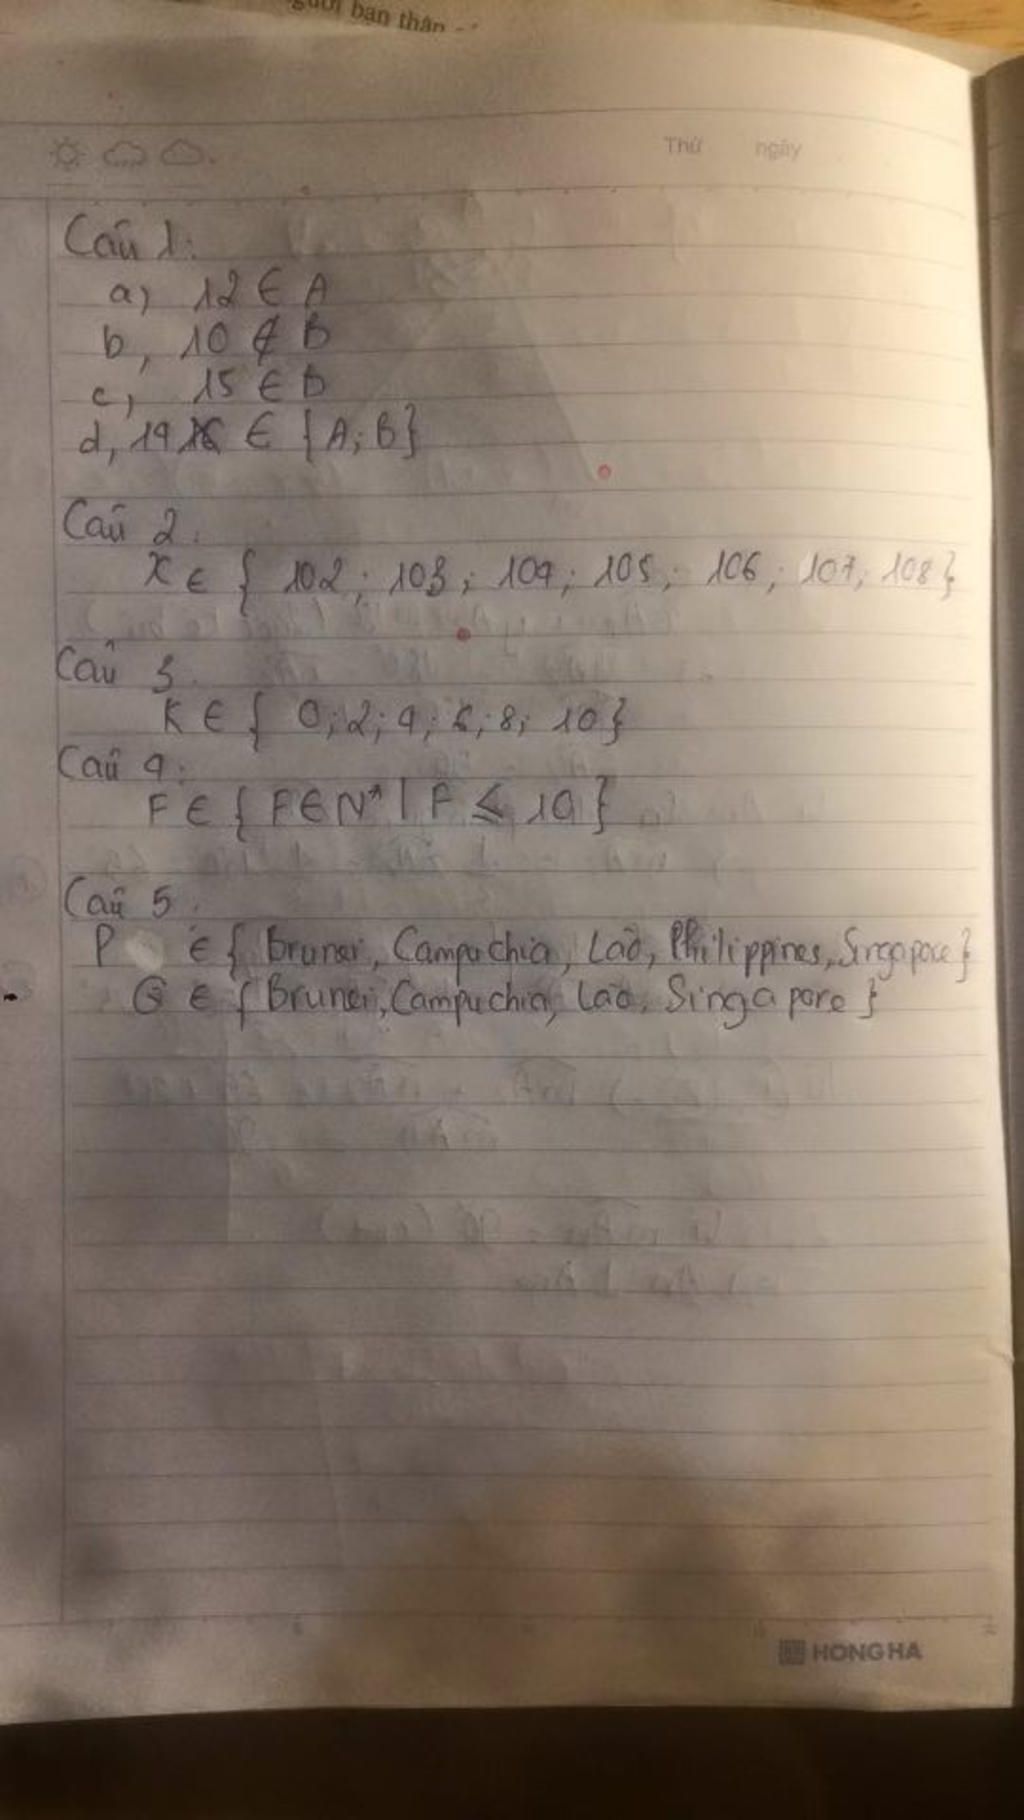 người bạn thân
Thứ ngày
Câu 1:
a, 12 ∈ A
b, 10 ∉ B
c, 15 ∈ B
d, 14 ∈ {A; B}
Câu 2.
X ∈ { 102; 103; 104; 105; 106; 107; 108}
Câu 3.
K ∈ { 0; 2; 4; 6; 8; 10}
Câu 4:
F ∈ { F ∈ N* | F ≤ 14 }
Câu 5.
P ∈ { Brunei, Campuchia, Lào, Philippines, Singapore}
G ∈ { Brunei, Campuchia, Lào, Singapore }
HONG HA